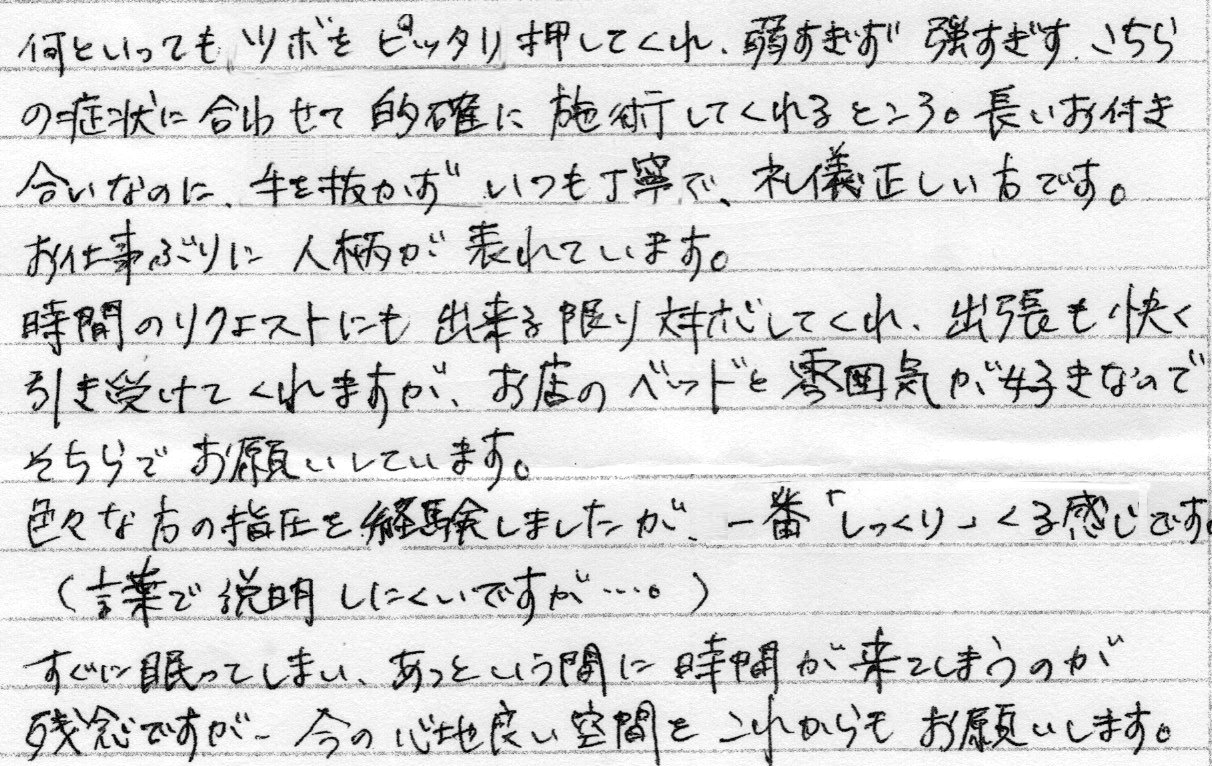 何といってもツボをピッタリ押してくれ、弱すぎず 強すぎず、こちら
の症状に合わせて的確に施術してくれるところ。長いお付き
合いなのに、手を抜かず いつも丁寧で、礼儀正しい方です。
お仕事ぶりに人柄が表れています。
時間のリクエストにも出来る限り対応してくれ、出張も快く
引き受けてくれますが、お店のベッドと雰囲気が好きなので
そちらでお願いしています。
色々な方の指圧を経験しましたが、一番「しっくり」くる感じです。
(言葉で説明しにくいですが…。)
すぐに眠ってしまい、あっという間に時間が来てしまうのが
残念ですが、今の心地良い空間をこれからもお願いします。